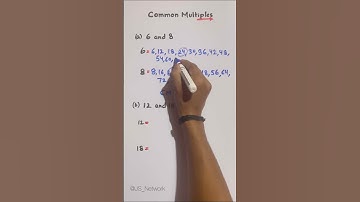 Common Multiples
(a) 6 and 8
6 = 6, 12, 18, 24, 30, 36, 42, 48,
54, 60,
8 = 8, 16, 8, 56, 64,
72
(b) 12 and
12 =
18 =
@US_Network